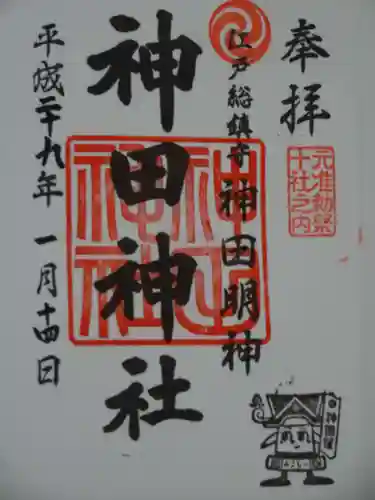 奉拝
元准勅祭
十社之内
江戸総鎮守神田明神
神田神社
平成二十九年一月十四日